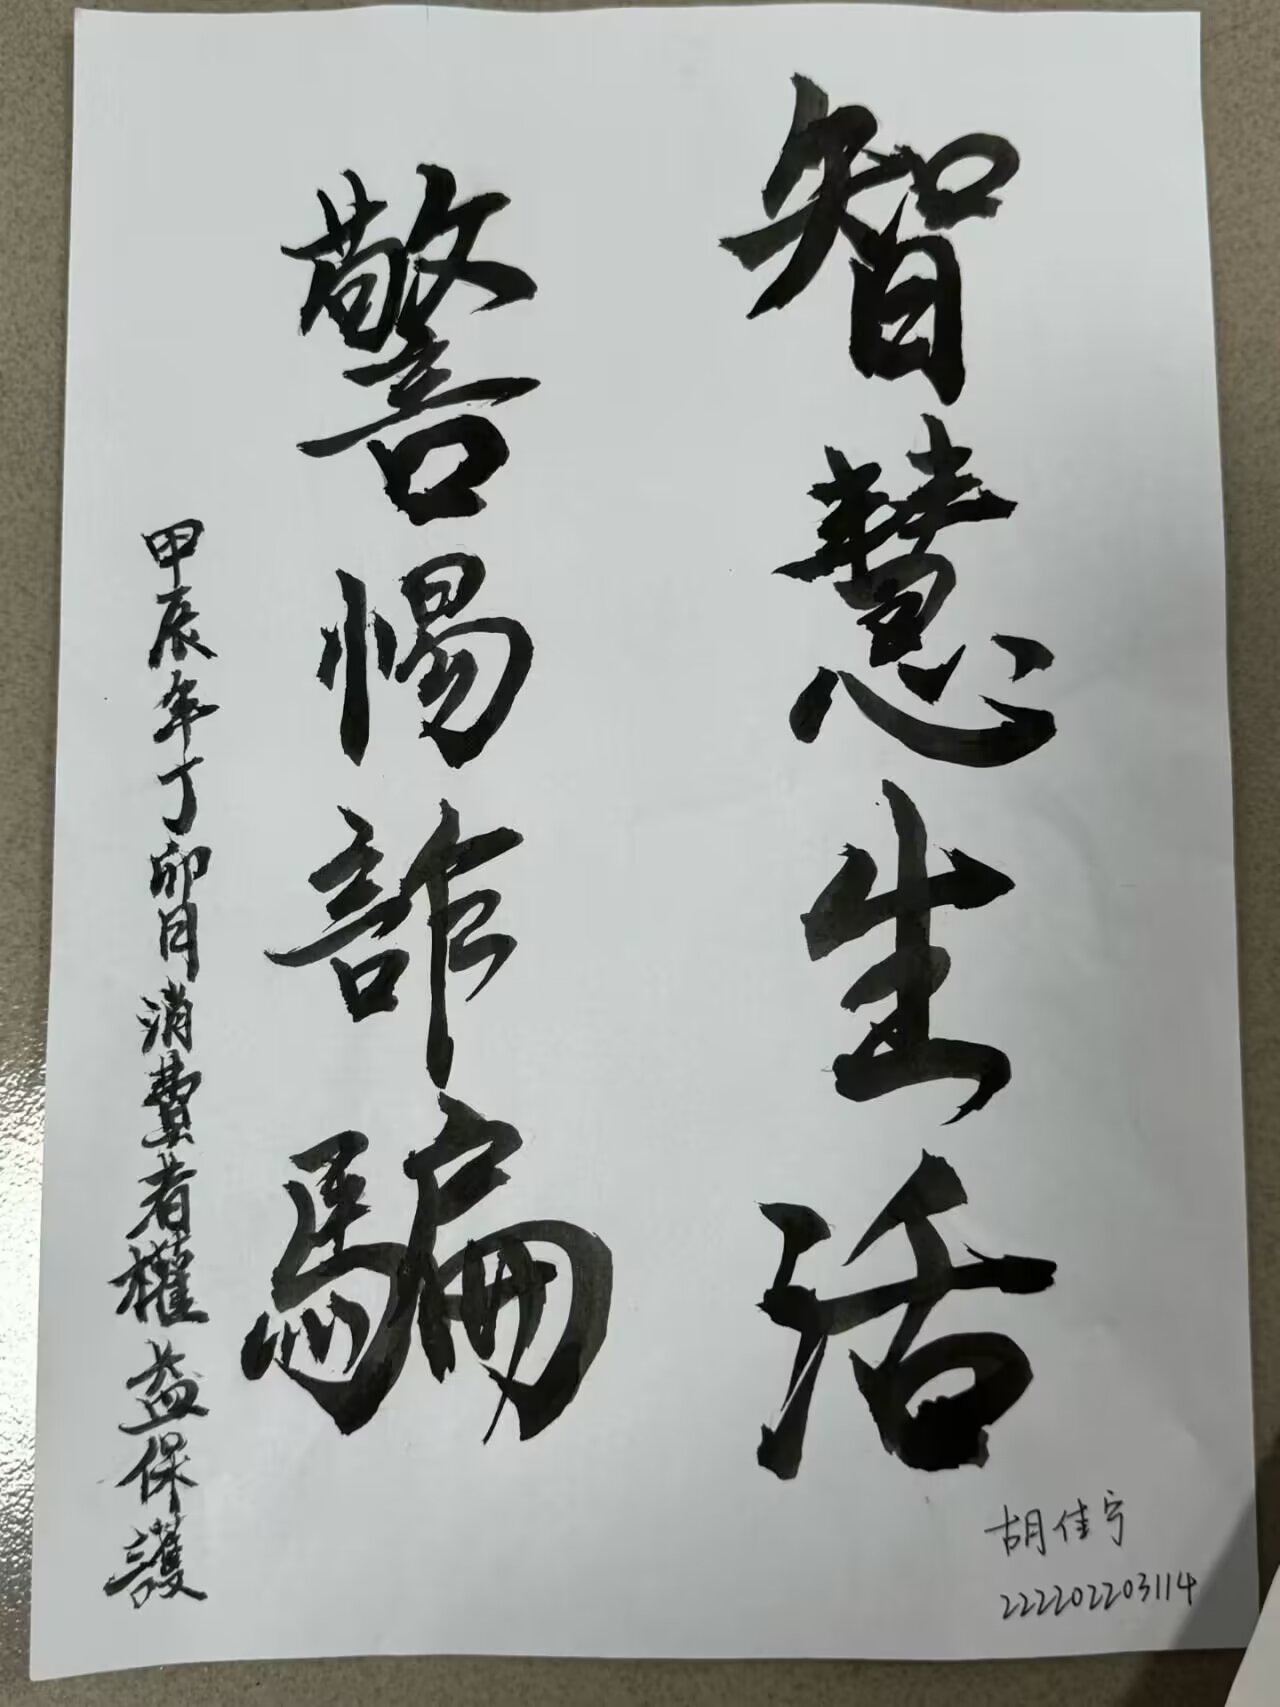 智慧生活
警惕詐騙
甲辰年丁卯月消費者權益保護
胡佳宁
222202203114